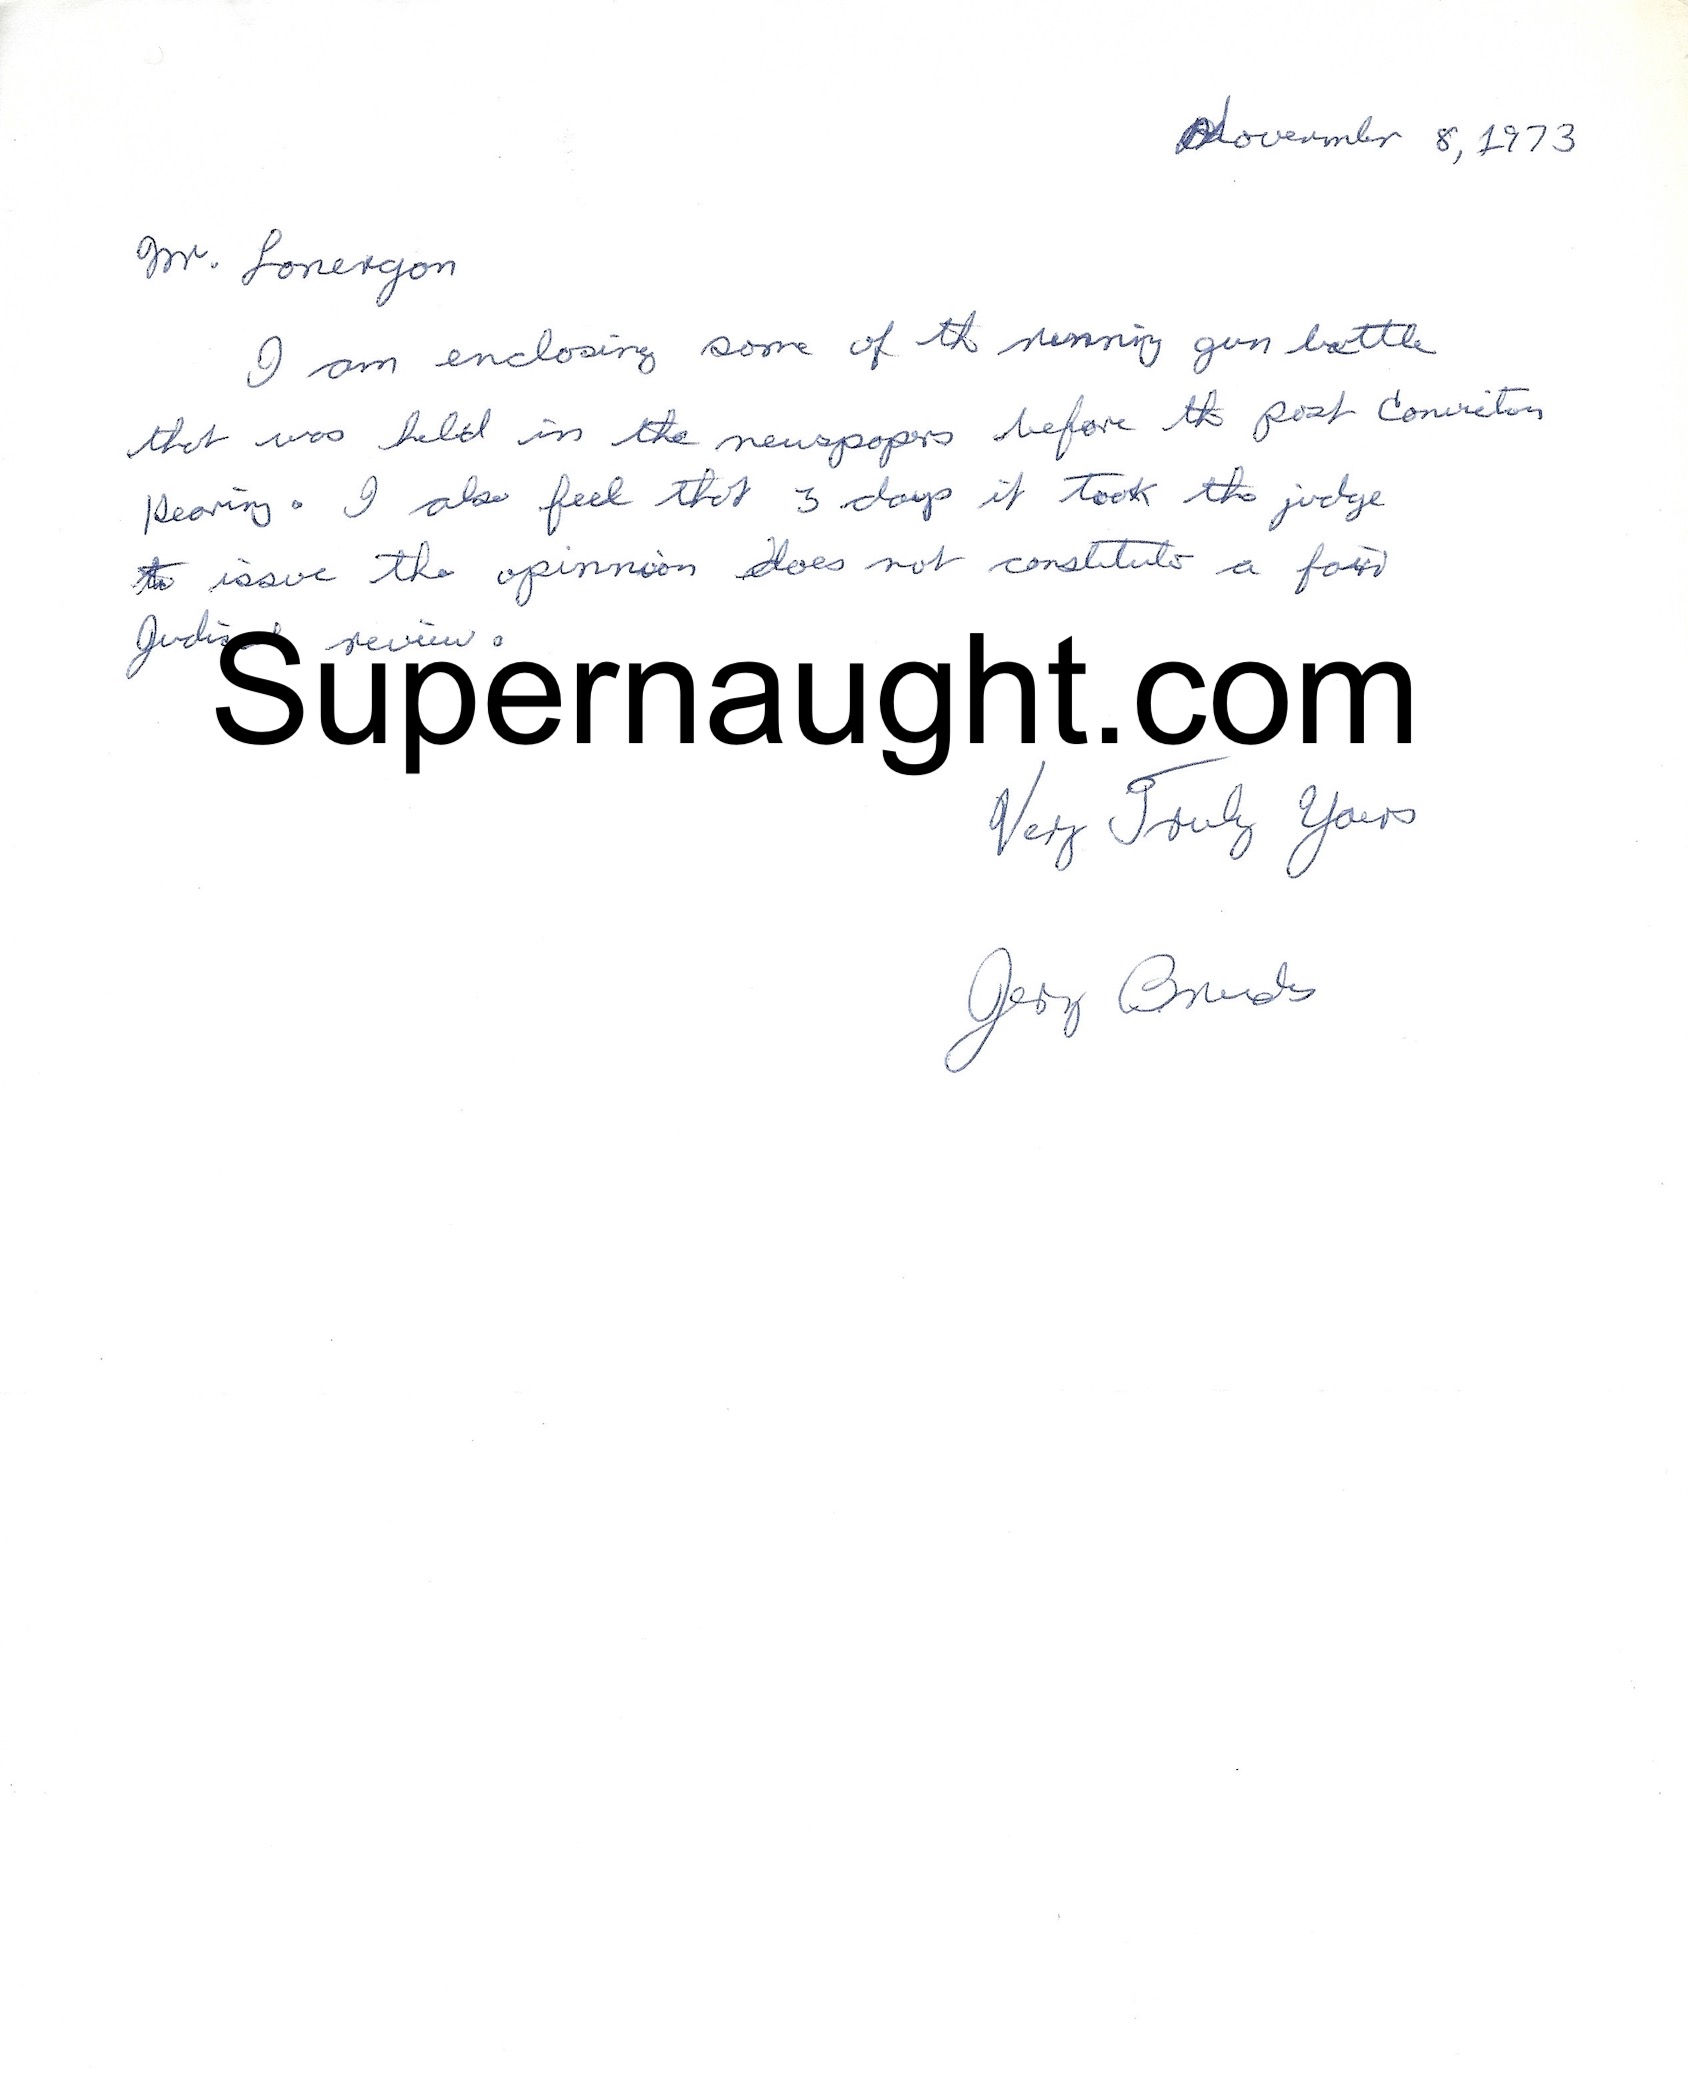 November 8, 1973
Mr. Lonergan
I am enclosing some of th running gun battle
that was held in the newspapers before the post Conviction
Hearing. I also feel that 3 days it took the judge
to issue the opinnion does not constitute a fair
review.
Supernaught.com
Very Truly Yours
Jerry Brudos